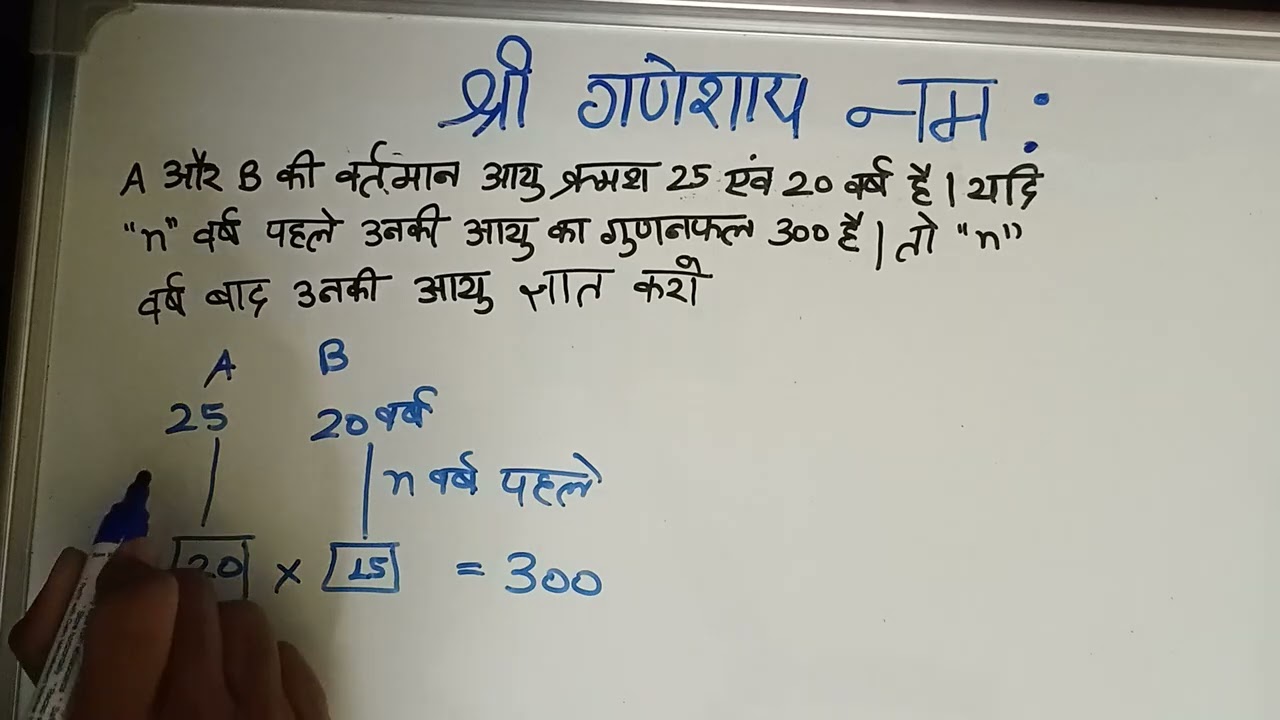 श्री गणेशाय नम:
A और B की वर्तमान आयु क्रमश 25 एंव 20 वर्ष है। यदि
"n" वर्ष पहले उनकी आयु का गुणनफल 300 है। तो "n"
वर्ष बाद उनकी आयु ज्ञात करो
A B
25 20 वर्ष
n वर्ष पहले
20 × 15 = 300